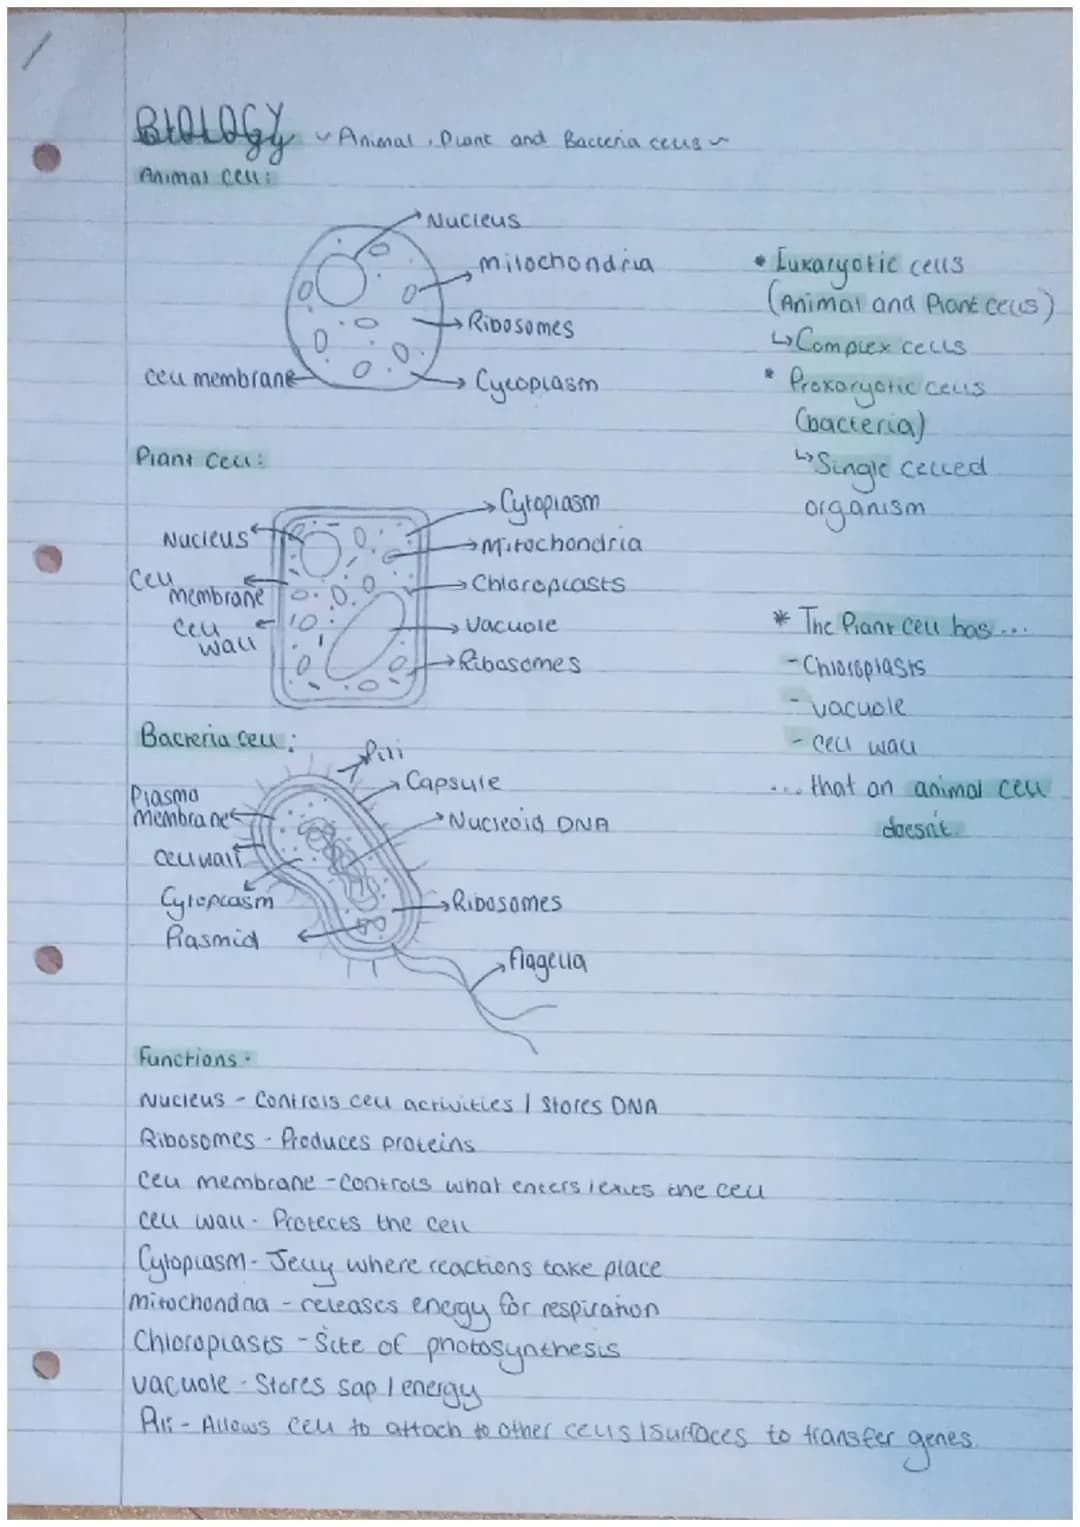 BIOLOGY ~ Animal, Plant and Bacteria cells ~
Animal cell:
Nucleus
mitochondria
Ribosomes
Cytoplasm
cell membrane
* Eukaryotic cells
(Animal and Plant cells)
↳ Complex cells
* Prokaryotic cells
(bacteria)
↳ Single celled
organism
Plant cell:
Cytoplasm
Mitochondria
Chloroplasts
Vacuole
Ribosomes
Nucleus
Cell
membrane
Cell
wall
* The Plant cell has...
- Chloroplasts
- vacuole
- cell wall
... that an animal cell
doesn't
Bacteria cell:
Pili
Capsule
Nucleoid DNA
Ribosomes
flagella
Plasma
membrane
cell wall
Cytoplasm
Plasmid
Functions:
Nucleus - Controls cell activities / Stores DNA
Ribosomes - Produces proteins
Cell membrane - Controls what enters / exits the cell
Cell wall - Protects the cell
Cytoplasm - Jelly where reactions take place
Mitochondria - releases energy for respiration
Chloroplasts - Site of photosynthesis
Vacuole - Stores sap / energy
Pili - Allows cell to attach to other cells / surfaces to transfer genes